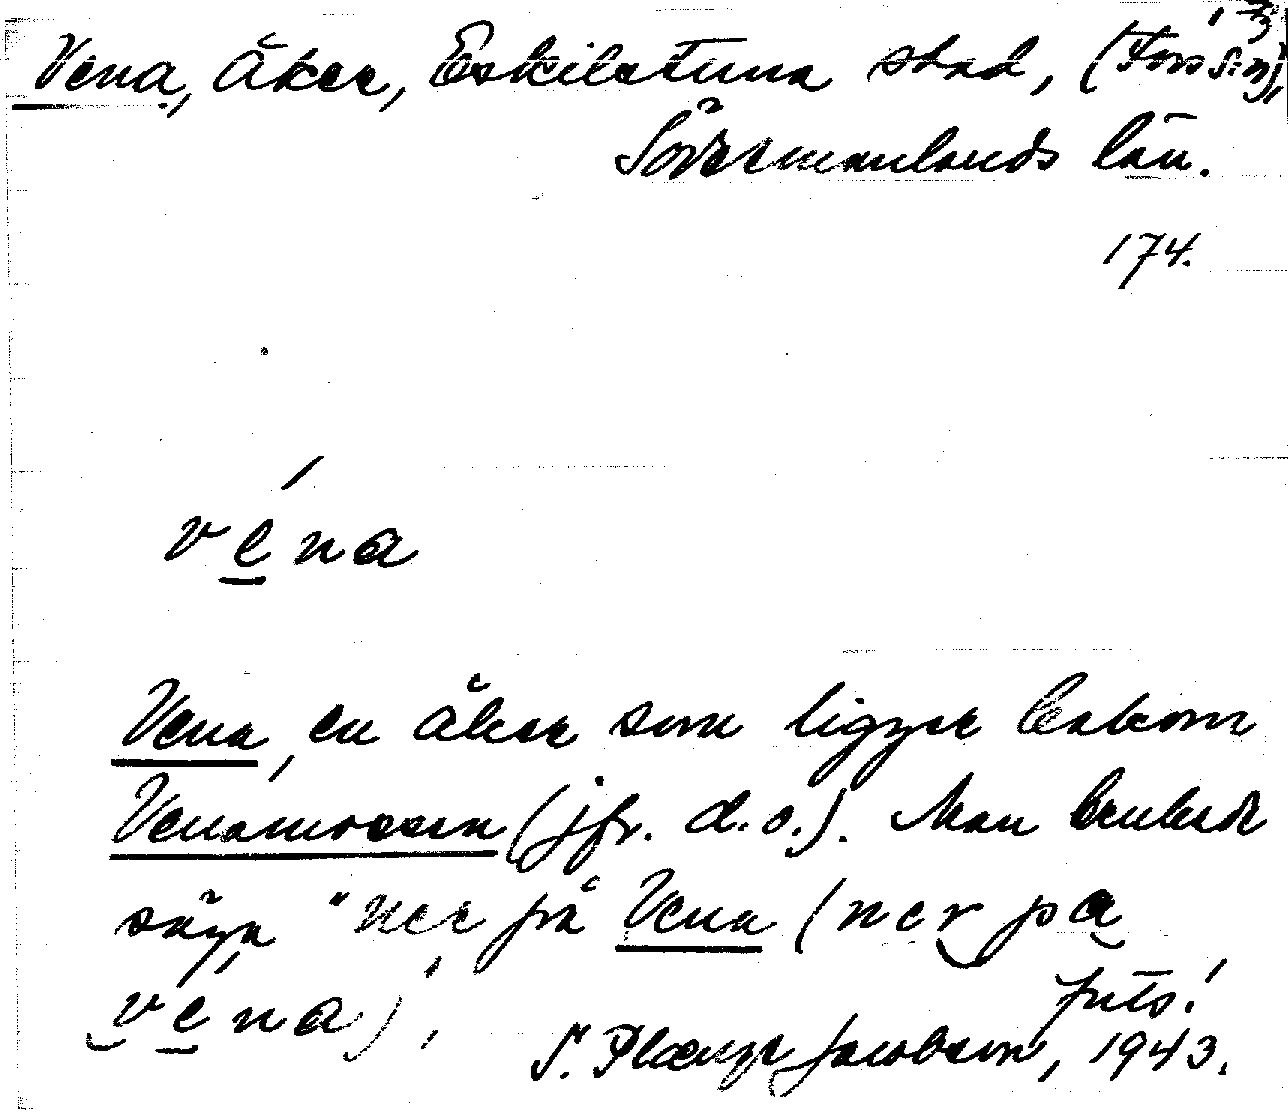 Vena, åker, Eskilstuna stad, (Fors sn),
Södermanlands län.
174.
véna
Vena, en åker som ligger bakom
Venamossen (jfr. d.o.). Man brukade
säga "ner på Vena (ner pa
véna),
forts!
S. Plænge Jacobson, 1943.